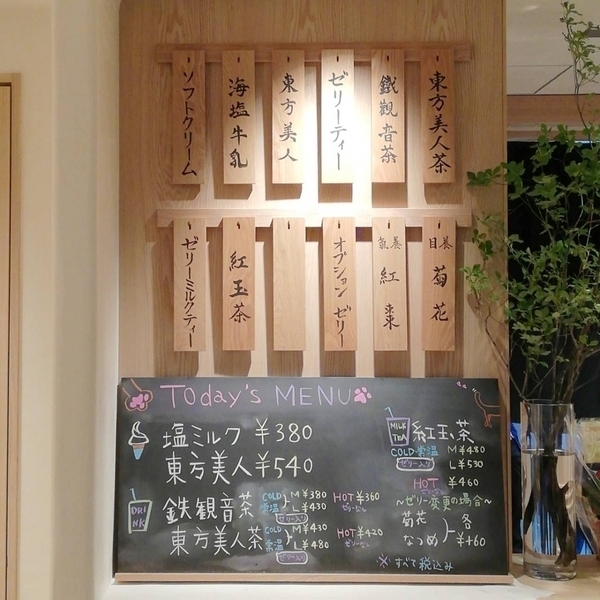 東方美人茶
鐵觀音茶
ゼリーティー
東方美人
海塩牛乳
ソフトクリーム
養目
菊花
養氣
紅棗
オプション ゼリー
紅玉茶
ゼリーミルクティー
Today's MENU
塩ミルク ¥380
東方美人 ¥540
DRINK
鉄観音茶 COLD 常温 M¥380 L¥430 ゼリー入り HOT¥360 ゼリーなし
東方美人茶 COLD 常温 M¥430 L¥480 ゼリー入り HOT¥420 ゼリーなし
MILK TEA
紅玉茶
COLD・常温 M¥480
ゼリー入り L¥530
HOT ¥460
ゼリーなし
〜ゼリー変更の場合〜
菊花
なつめ
各 ¥+60
※すべて税込み